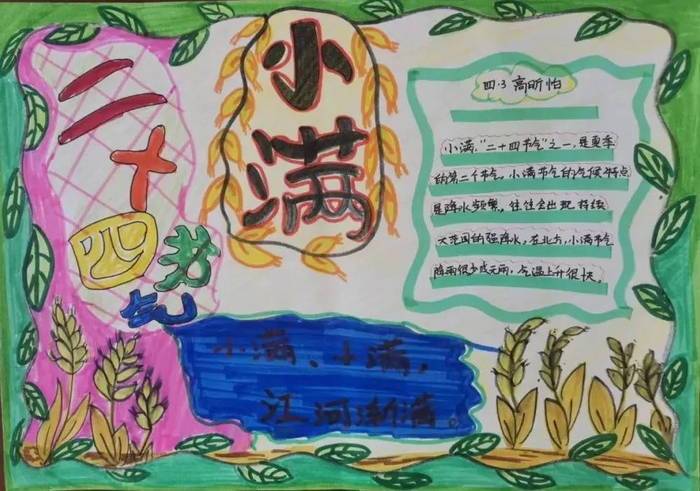 二十四节气
小满
四·3 高昕怡
小满,“二十四节气”之一,是夏季
的第二个节气。小满节气的气候特点
是降水频繁,往往会出现持续
大范围的强降水,在北方,小满节气
降雨很少或无雨,气温上升很快。
小满、小满,
江河渐满。